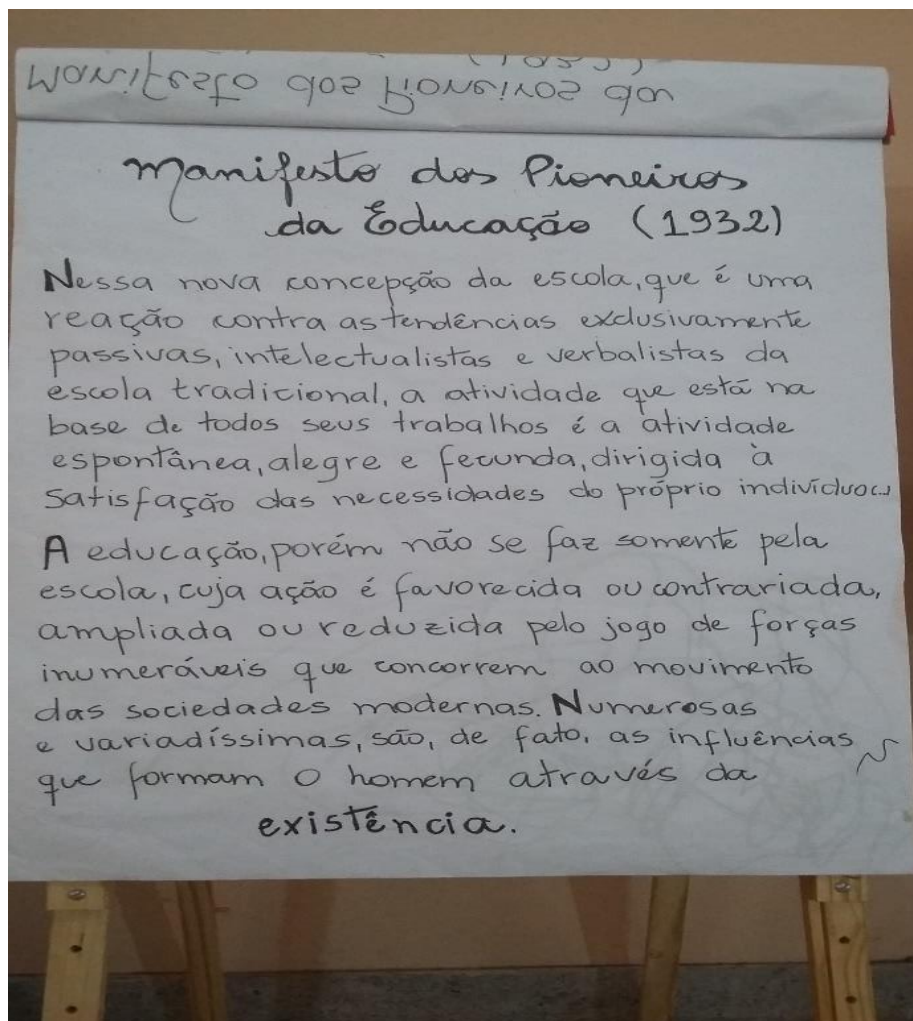 Manifesto dos Pioneiros da
Manifesto dos Pioneiros
da Educação (1932)
Nessa nova concepção da escola, que é uma
reação contra as tendências exclusivamente
passivas, intelectualistas e verbalistas da
escola tradicional, a atividade que está na
base de todos seus trabalhos é a atividade
espontânea, alegre e fecunda, dirigida à
satisfação das necessidades do próprio indivíduo(...)
A educação, porém não se faz somente pela
escola, cuja ação é favorecida ou contrariada,
ampliada ou reduzida pelo jogo de forças
inumeráveis que concorrem ao movimento
das sociedades modernas. Numerosas
e variadíssimas, são, de fato, as influências
que formam o homem através da
existência.